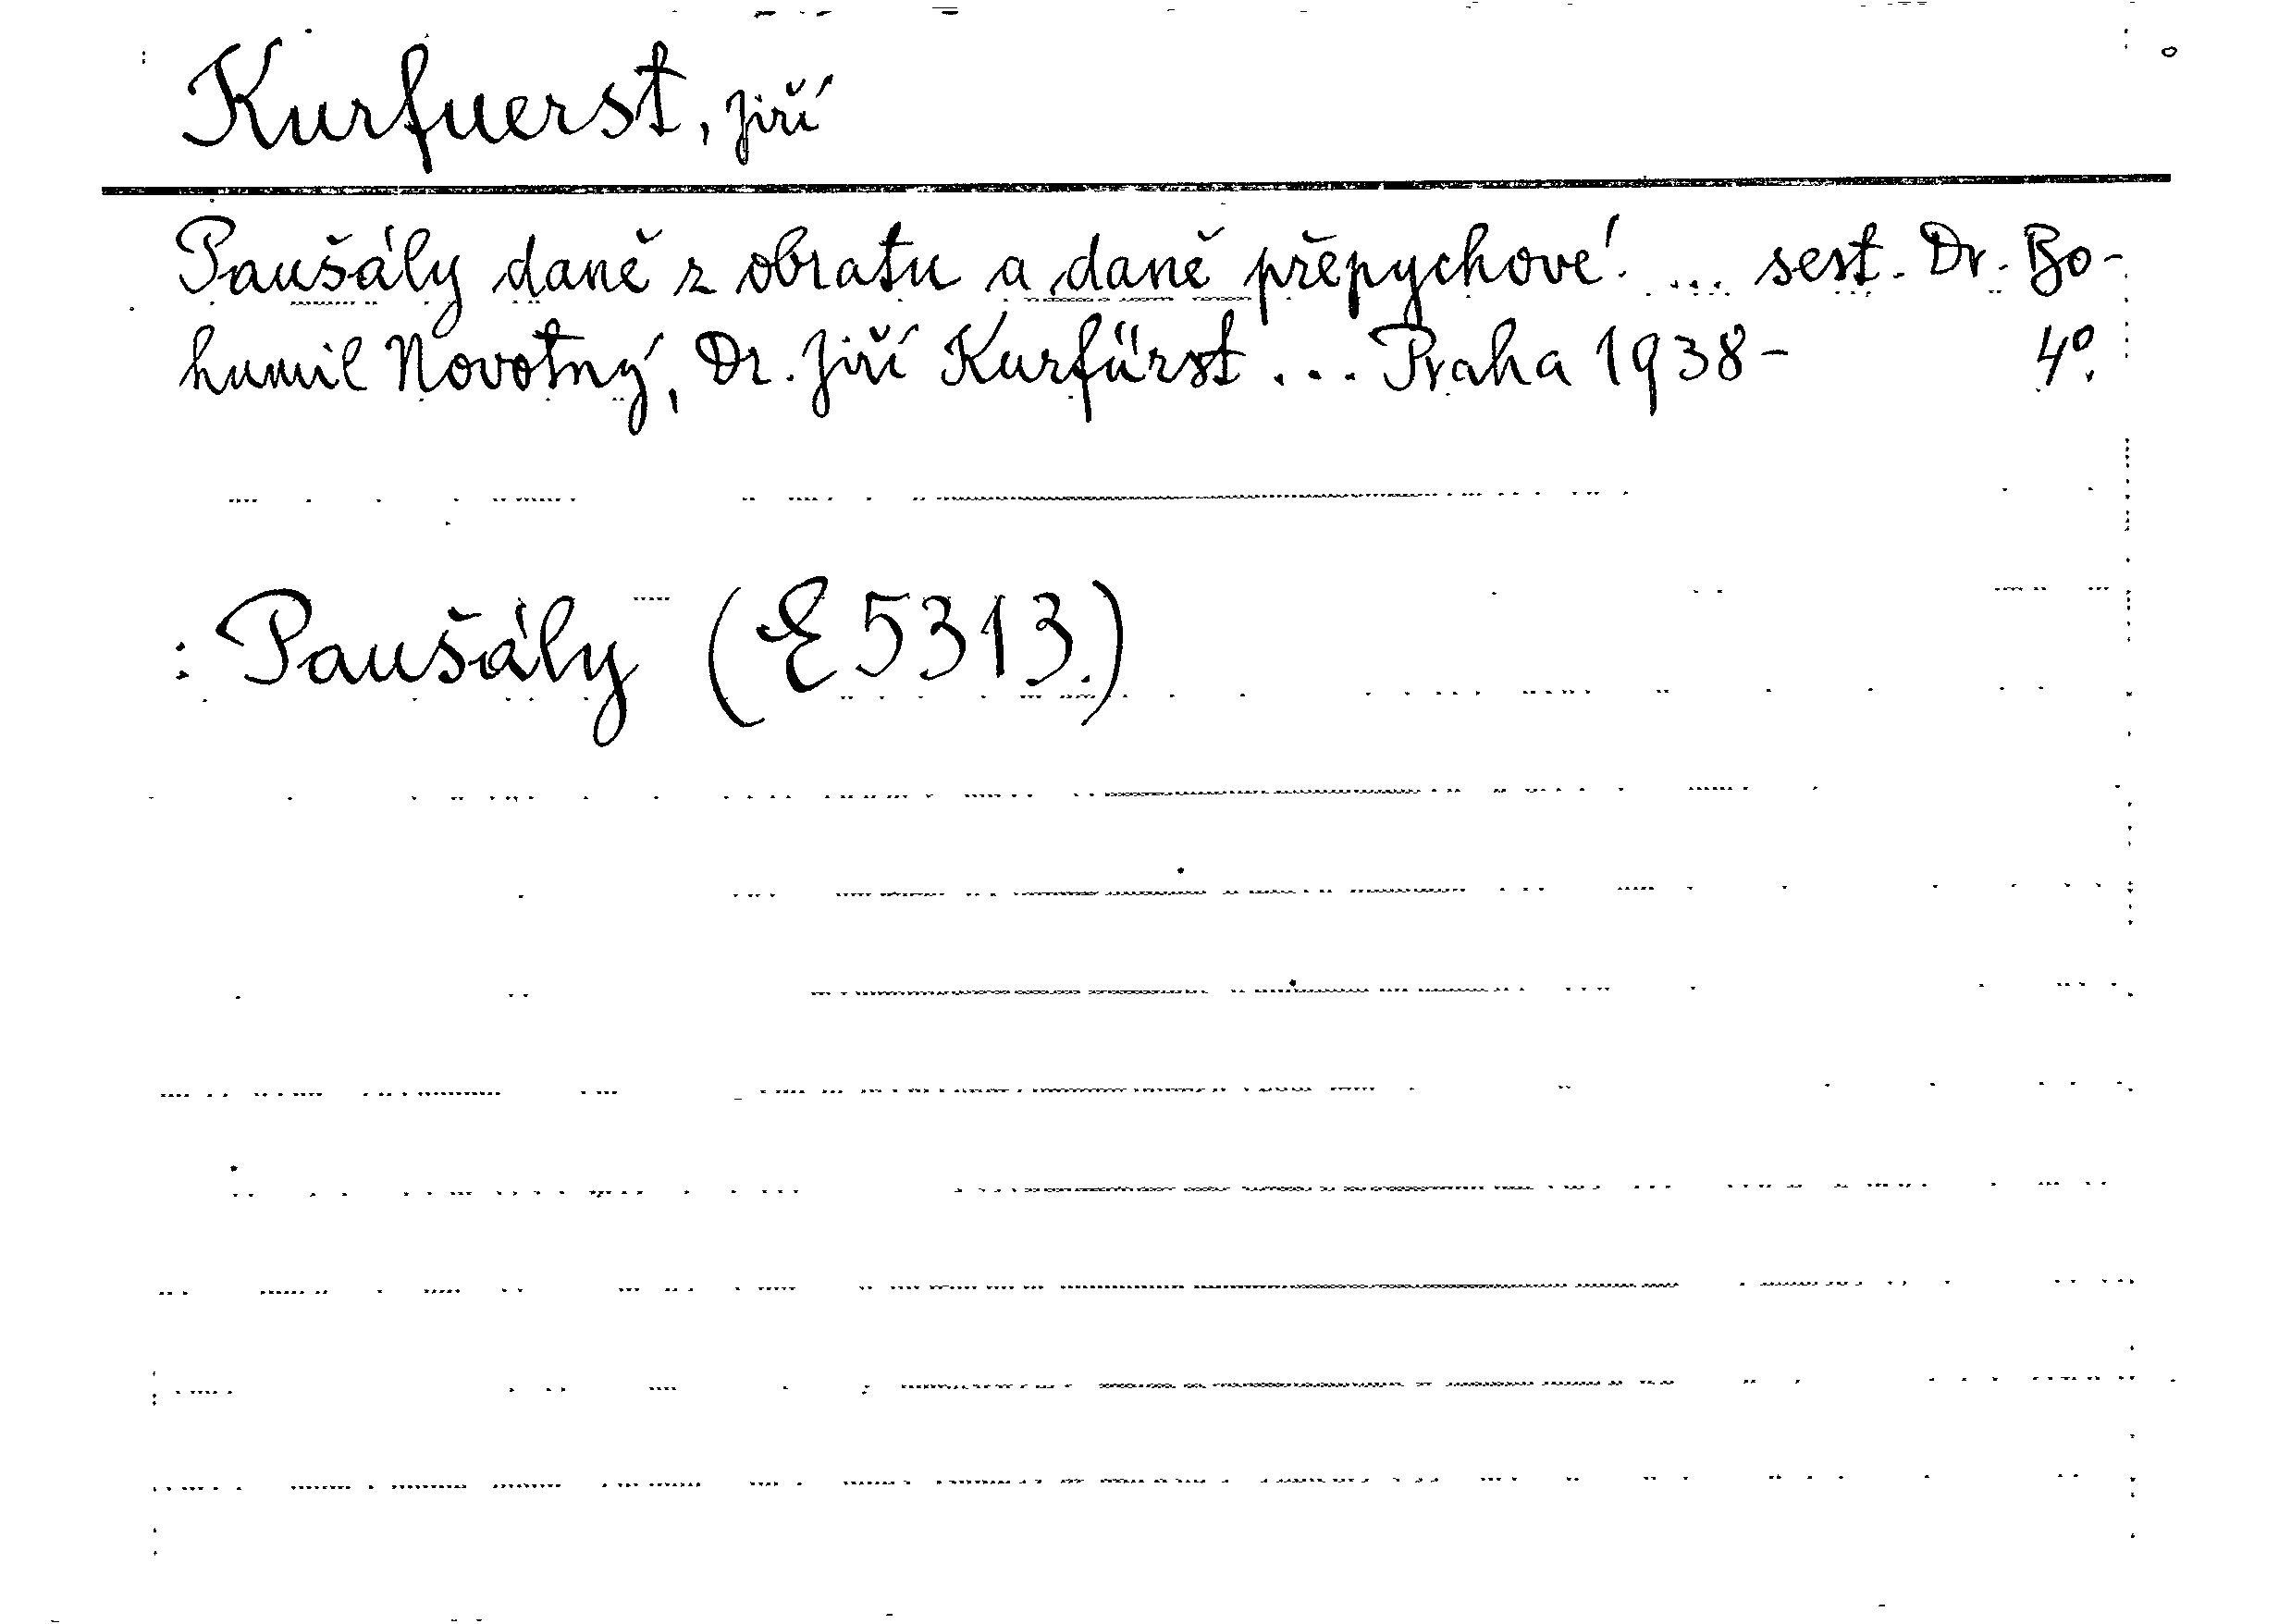 Kurfuerst, Jiří
Paušály daně z obratu a daně přepychové. ... sest. Dr. Bo-
humil Novotný, Dr. Jiří Kurfürst ... Praha 1938- 4º.
: Paušály (E 5313.)